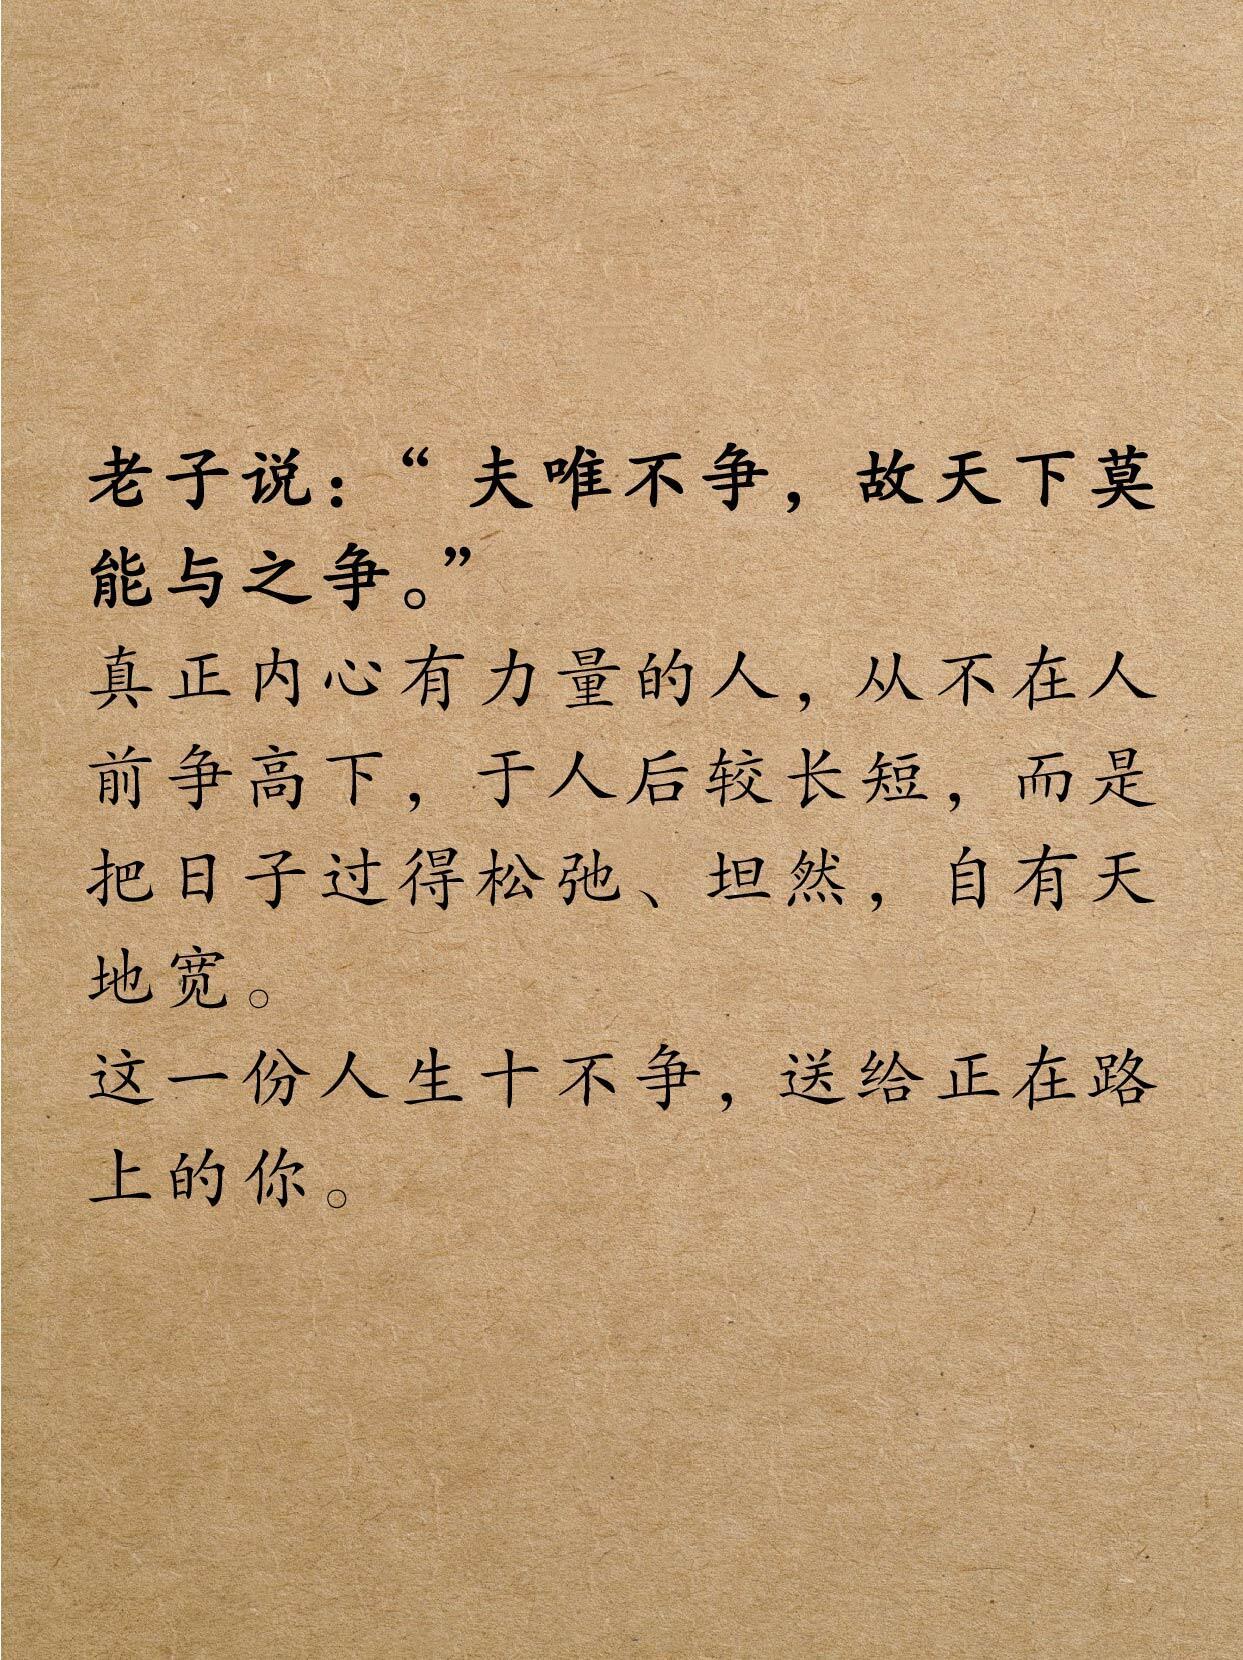 老子说：“夫唯不争，故天下莫
能与之争。”
真正内心有力量的人，从不在人
前争高下，于人后较长短，而是
把日子过得松弛、坦然，自有天
地宽。
这一份人生十不争，送给正在路
上的你。